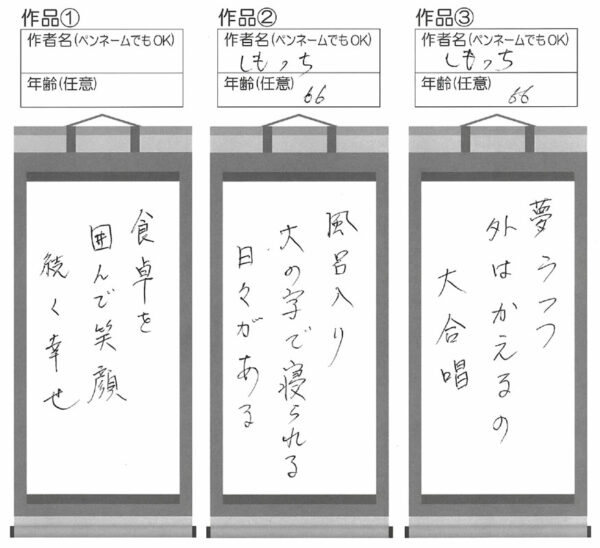 作品①
作者名(ペンネームでもOK)
年齢(任意)
食卓を
囲んで笑顔
続く幸せ
作品②
作者名(ペンネームでもOK)
しもっち
年齢(任意) 66
風呂入り
大の字で寝られる
日々がある
作品③
作者名(ペンネームでもOK)
しもっち
年齢(任意) 66
夢うつつ
外はかえるの
大合唱